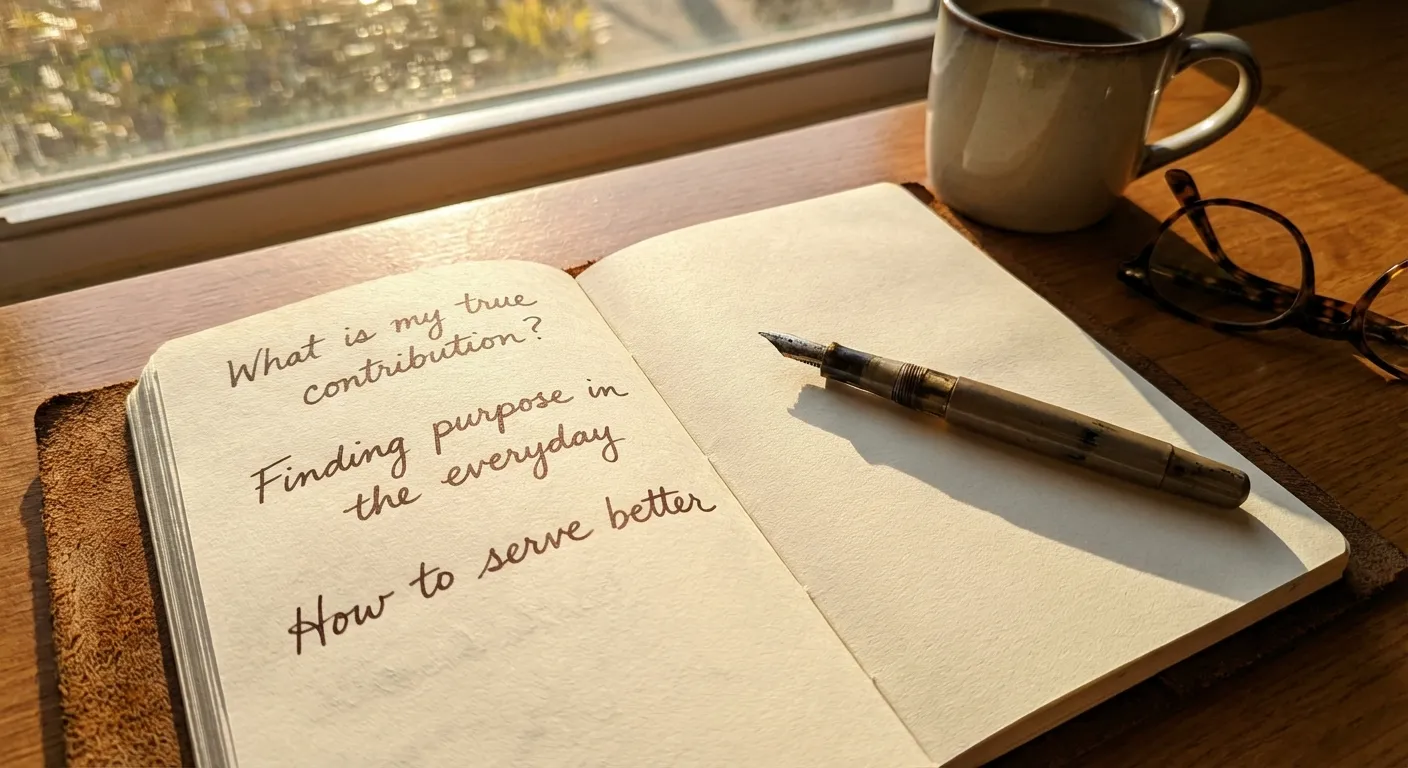 What is my true
contribution?
Finding purpose in
the everyday
How to serve better